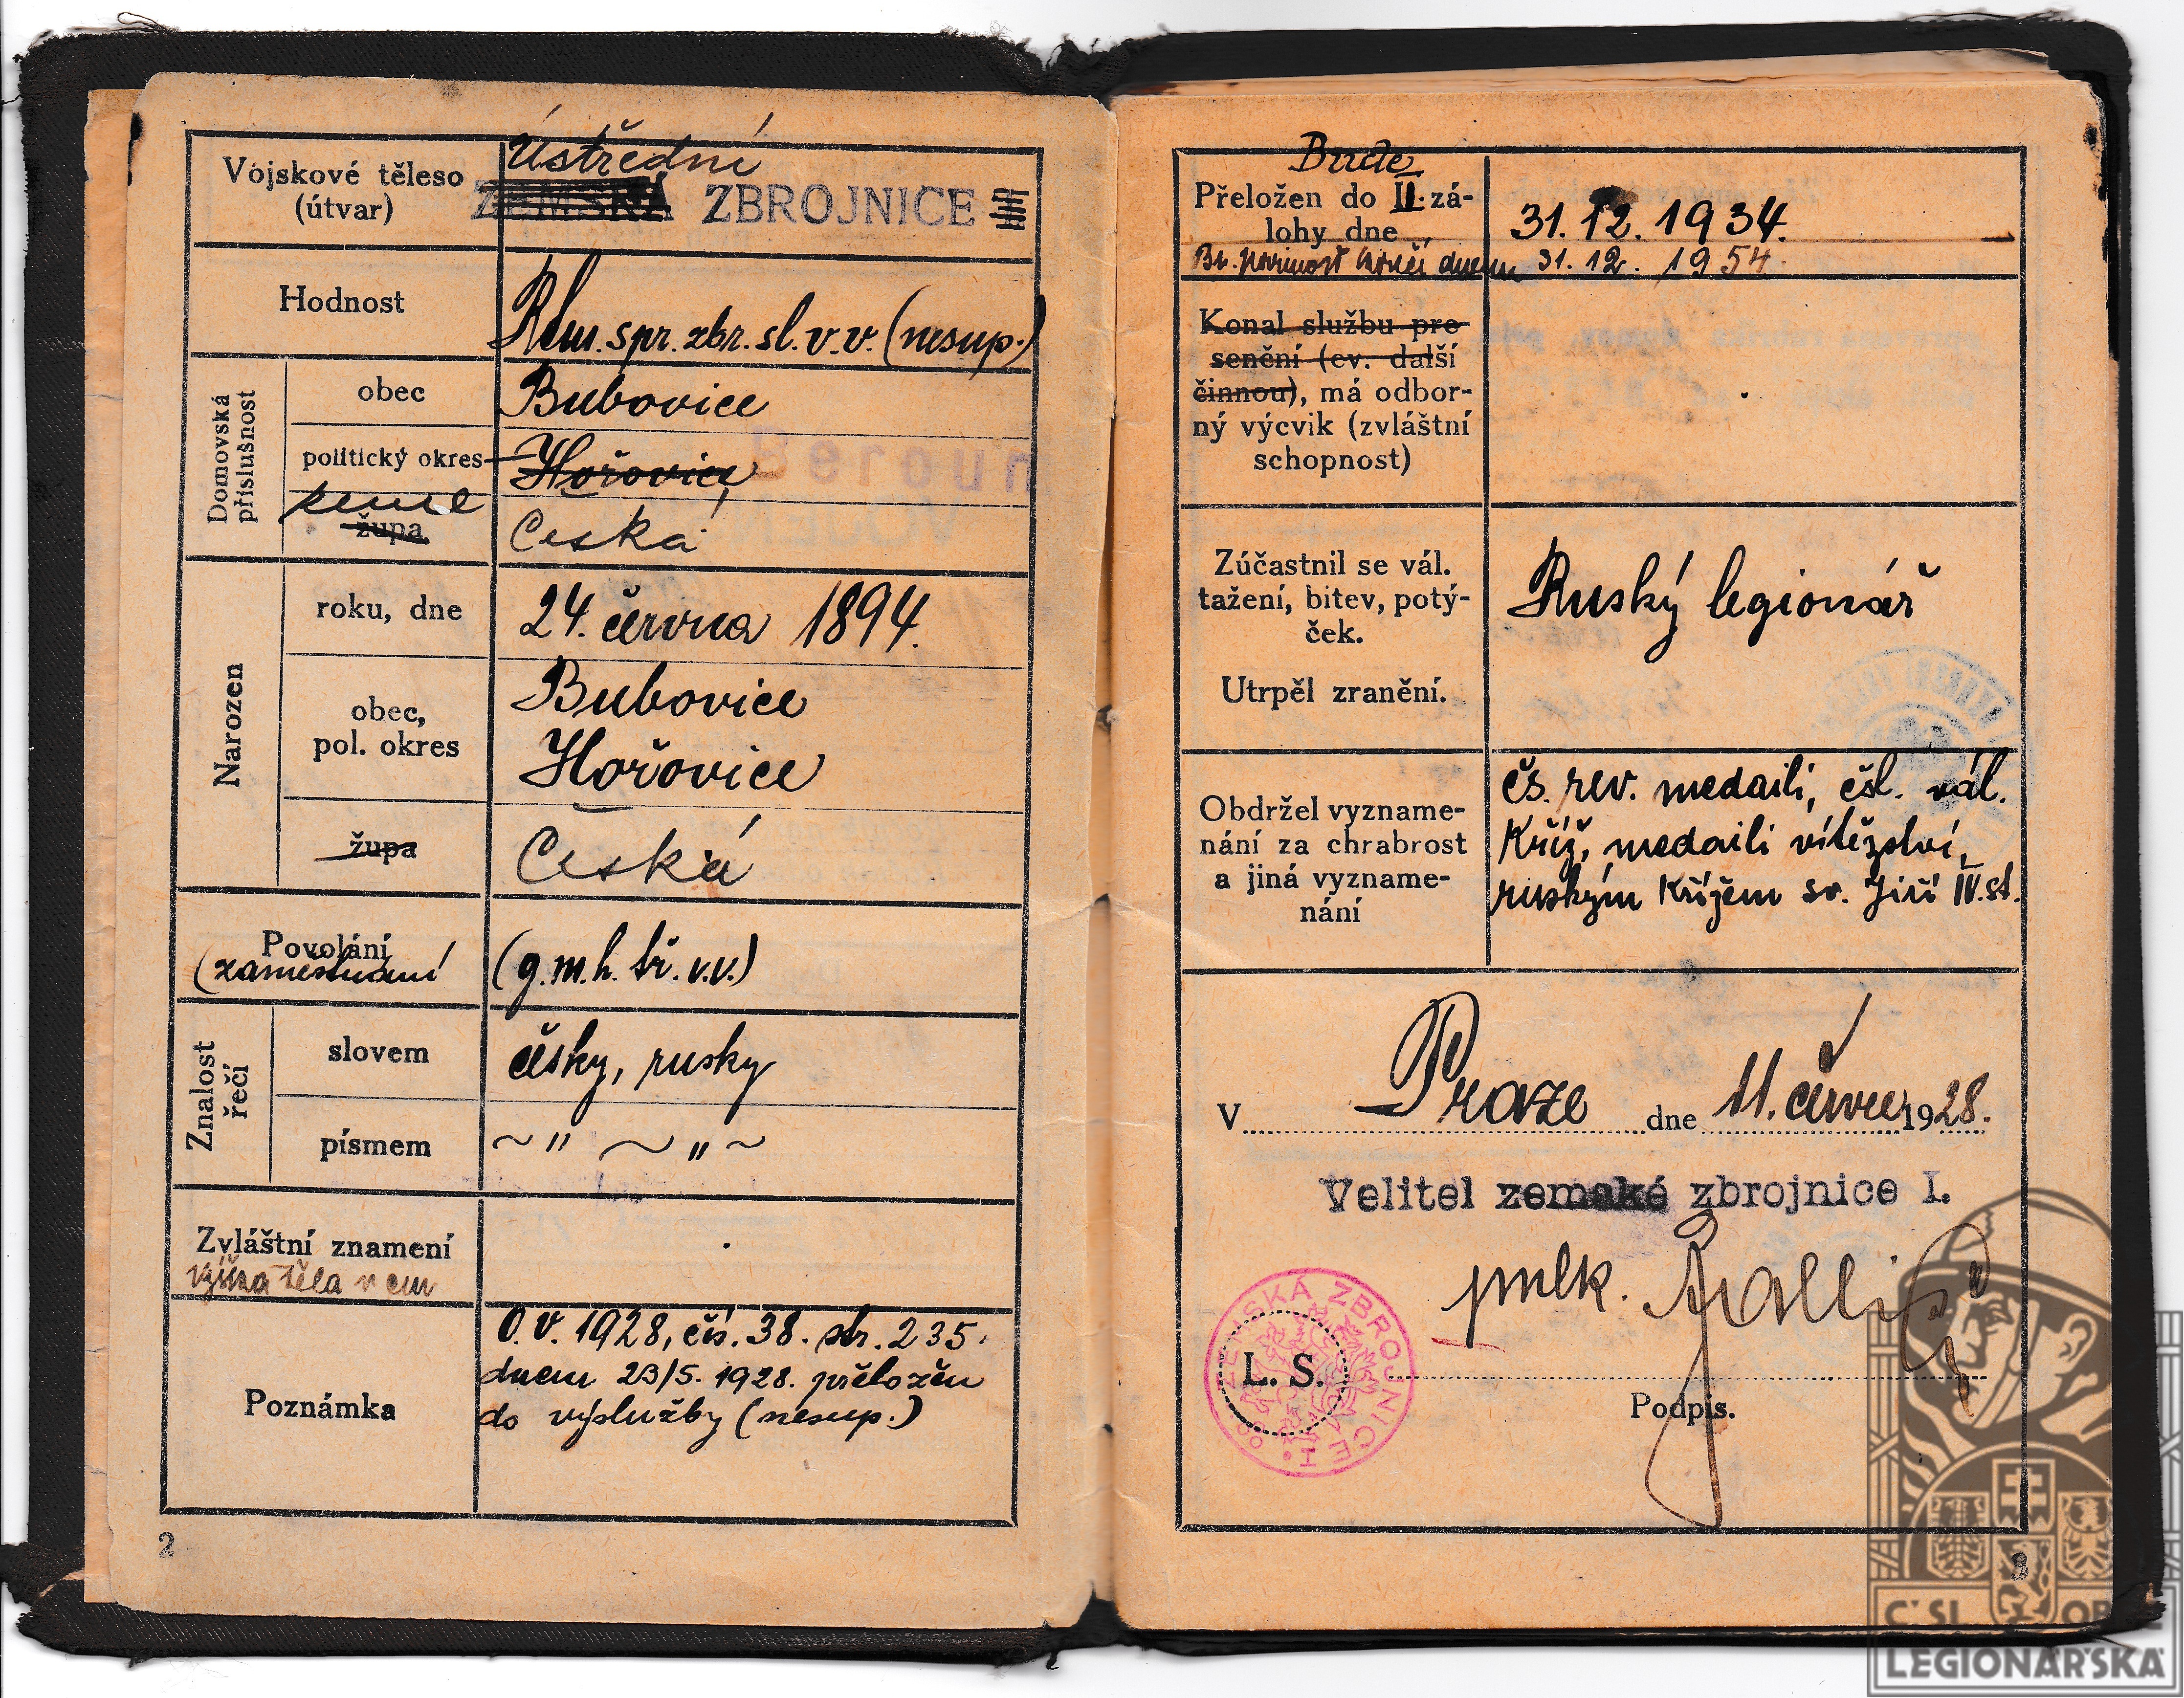 Vojskové těleso
(útvar)
Ústřední
ZEMSKÁ ZBROJNICE
Hodnost
Rem. spr. zbr. sl. v. v. (nesup.)
Domovská
příslušnost
obec
Bubovice
politický okres
Hořovice
Beroun
země
župa
Česká
Narozen
roku, dne
24. června 1894.
obec,
pol. okres
Bubovice
Hořovice
župa
Česká
Povolání
(zaměstnání
(g.m.h. tř. v.v.)
Znalost
řečí
slovem
česky, rusky
písmem
~ " ~ " ~
Zvláštní znamení
výška těla v cm
Poznámka
O.V. 1928, čís. 38. str. 235.
dnem 23/5. 1928. přeložen
do výslužby (nesup.)
2
Bude
Přeložen do II. zá-
lohy dne
31. 12. 1934.
Br. povinnost končí dnem 31. 12. 1954.
Konal službu pre
senční (ev. další
činnou), má odbor-
ný výcvik (zvláštní
schopnost)
Zúčastnil se vál.
tažení, bitev, potý-
ček.
Utrpěl zranění.
Ruský legionář
Obdržel vyzname-
nání za chrabrost
a jiná vyzname-
nání
čs. rev. medaili, čsl. vál.
kříž, medaili vítězství,
ruským křížem sv. Jiří IV. st.
V Praze dne 11. července 1928.
Velitel zemské zbrojnice I.
pplk.
ZEMSKÁ ZBROJNICE I.
L. S.
Podpis.
3
ČSL OBEC
LEGIONÁŘSKÁ